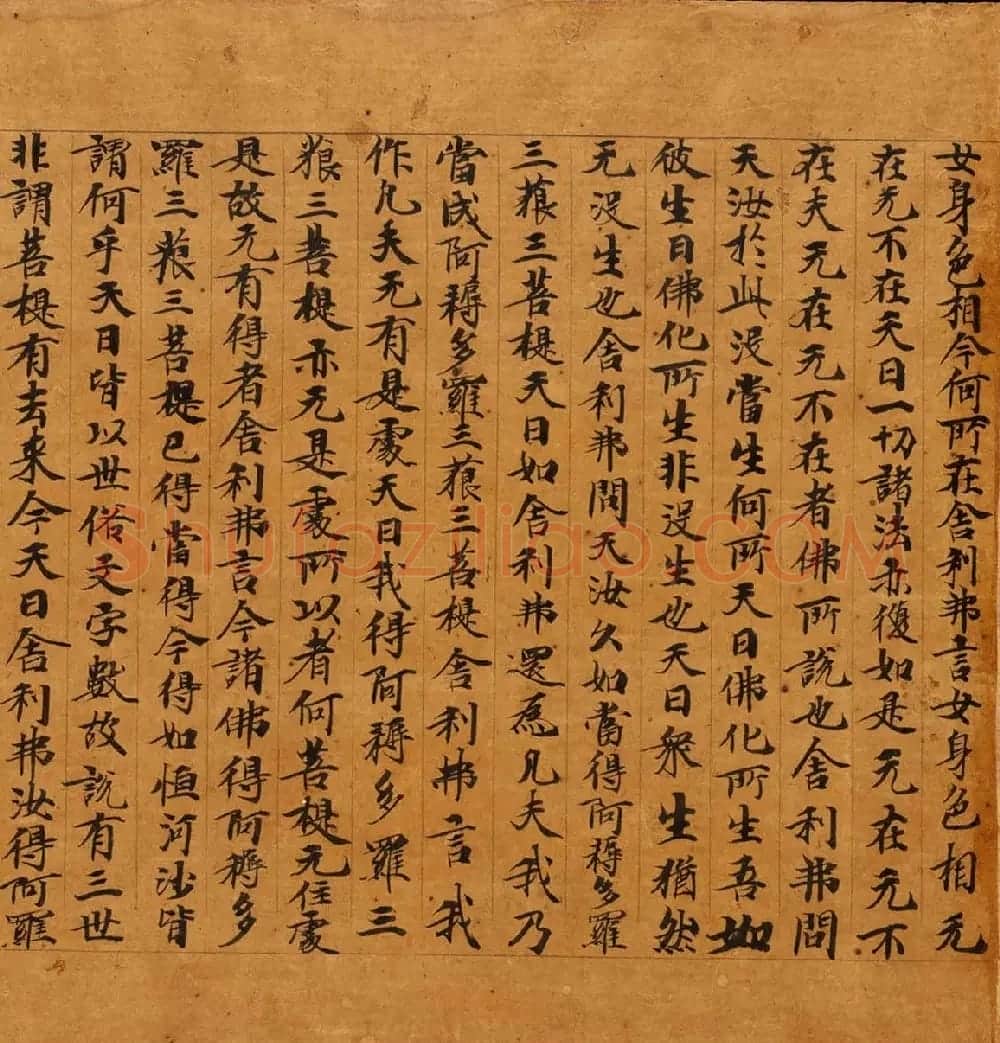 女身色相今何所在舍利弗言女身色相无
在无不在天曰一切諸法亦復如是无在无不
在夫无在无不在者佛所說也舍利弗問
天汝於此没當生何所天曰佛化所生吾如
彼生曰佛化所生非没生也天曰衆生猶然
无没生也舍利弗問天汝久如當得阿耨多羅
三藐三菩提天曰如舍利弗還為凡夫我乃
當成阿耨多羅三藐三菩提舍利弗言我
作凡夫无有是處天曰我得阿耨多羅三
藐三菩提亦无是處所以者何菩提无住處
是故无有得者舍利弗言今諸佛得阿耨多
羅三藐三菩提已得當得今得如恒河沙皆
謂何乎天曰皆以世俗文字數故說有三世
非謂菩提有去来今天曰舍利弗汝得阿羅
Shufaziliao.COM